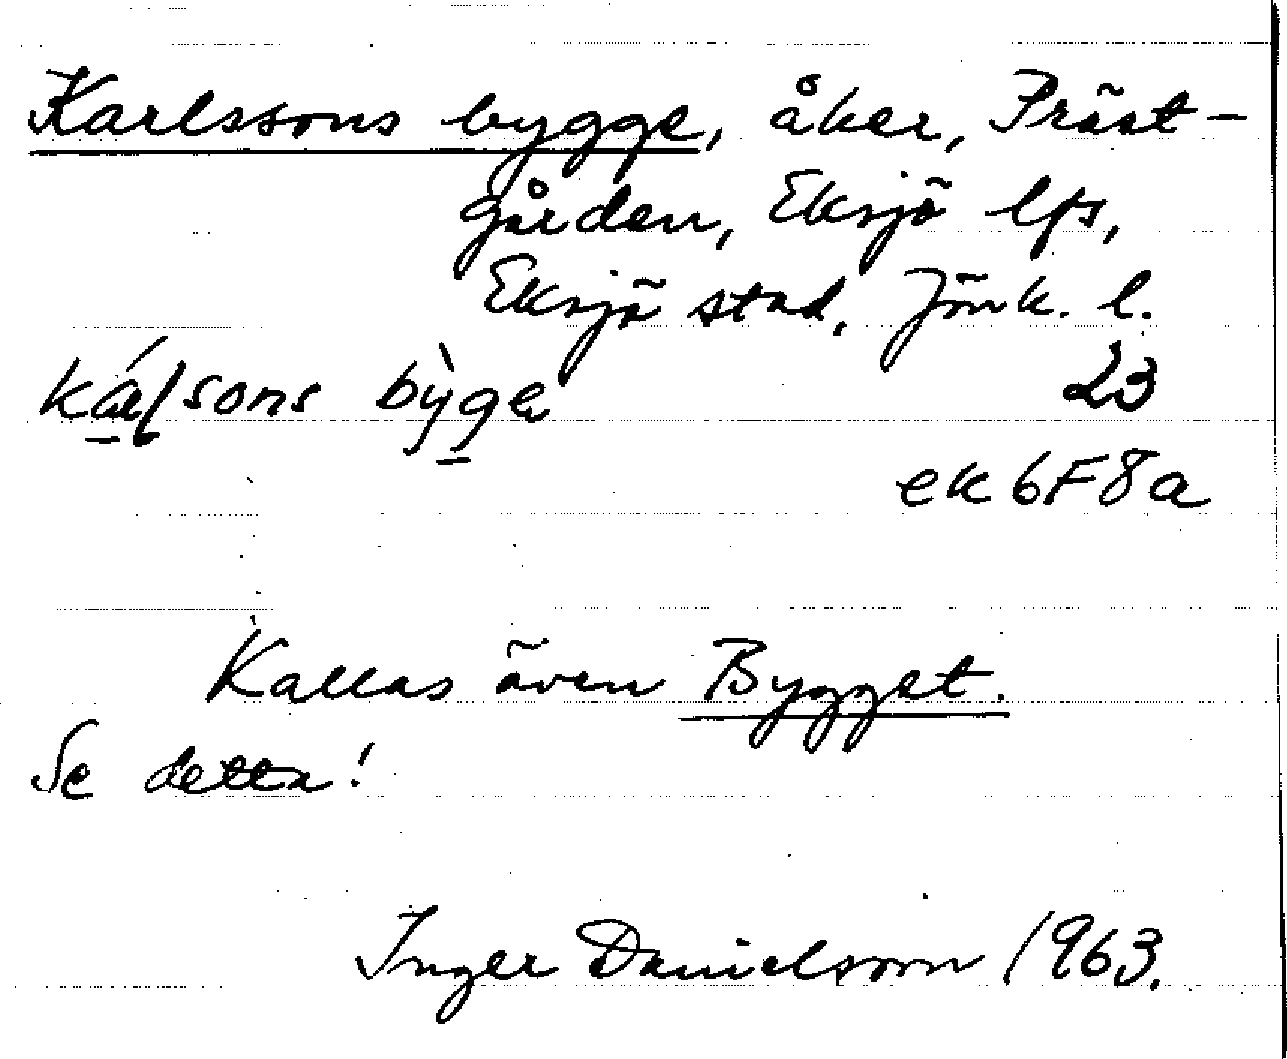 Karlssons bygge, åker, Präst-
gården, Eksjö lfs,
Eksjö stad, Jönk. l.
23
sons bỳge
ek 6F8a
Kallas även Bygget.
Se detta!
Inger Danielsson 1963.